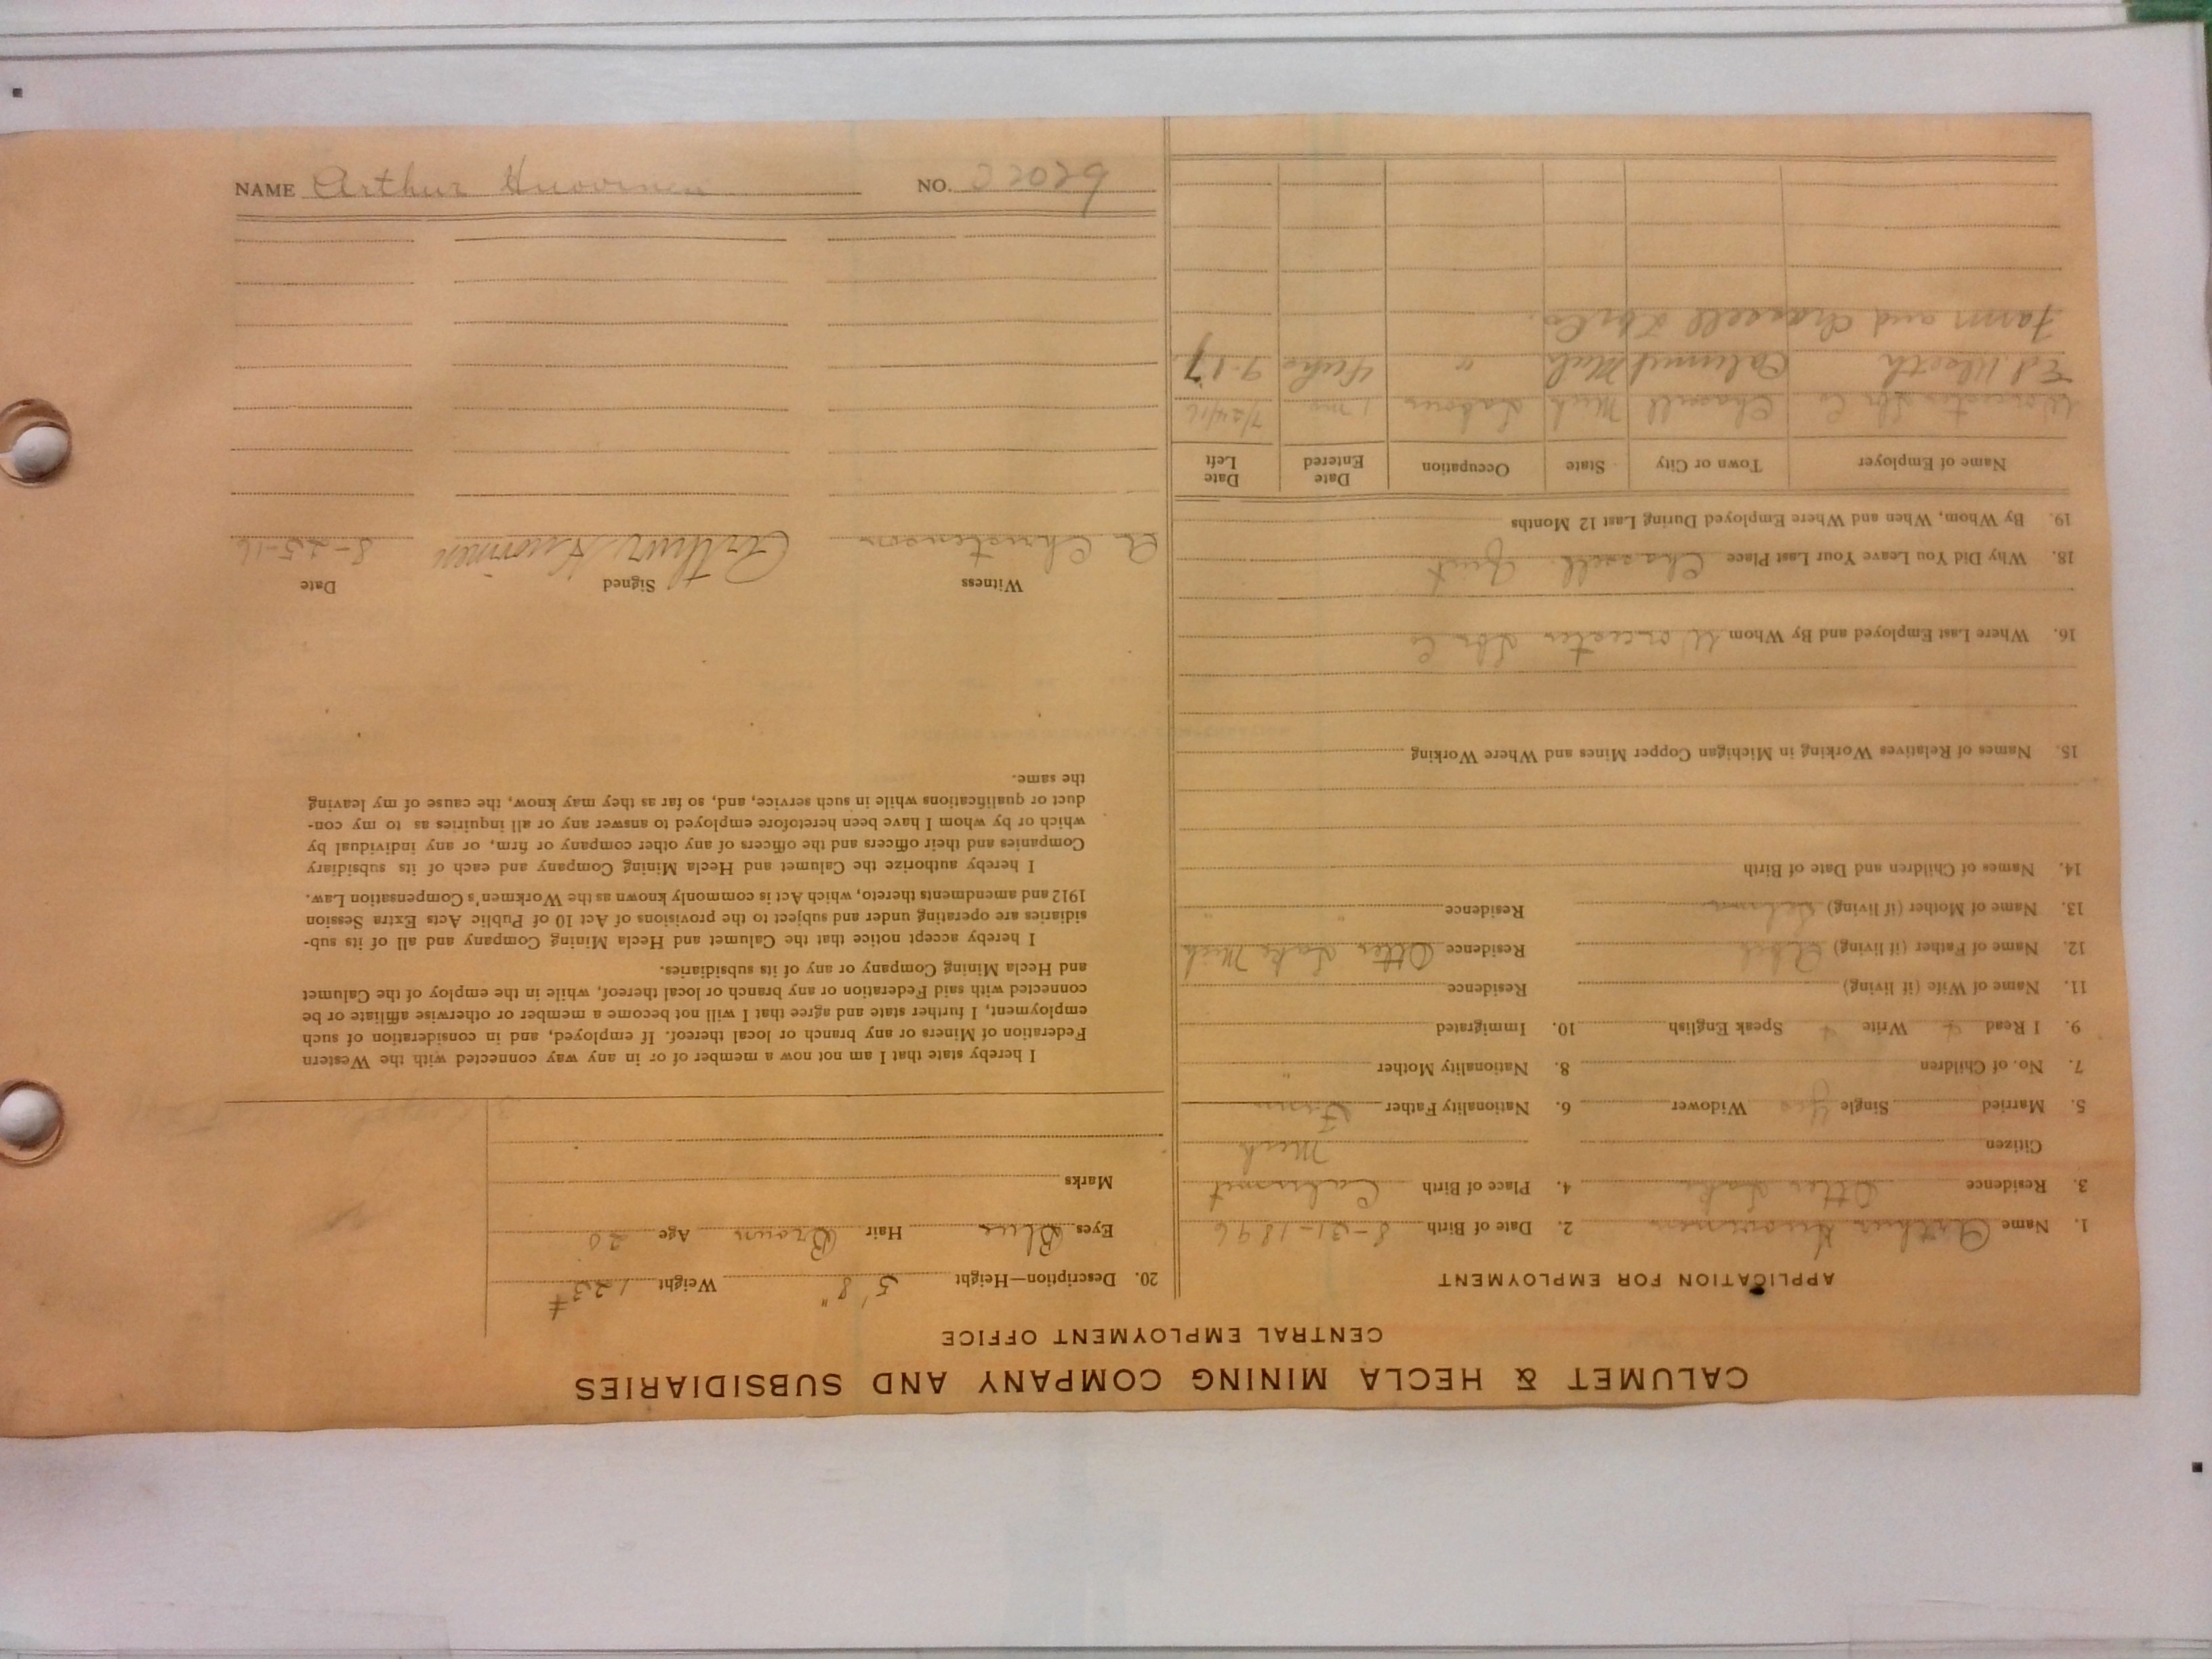 CALUMET & HECLA MINING COMPANY AND SUBSIDIARIES
CENTRAL EMPLOYMENT OFFICE
APPLICATION FOR EMPLOYMENT
1. Name Arthur Huovinen 2. Date of Birth 8-21-1896
3. Residence Otter Lake 4. Place of Birth Calumet
Citizen Mich
5. Married Single Yes Widower 6. Nationality Father Finn
7. No. of Children 8. Nationality Mother "
9. I Read Write Speak English 10. Immigrated
11. Name of Wife (if living) Residence
12. Name of Father (if living) Abel Residence Otter Lake Mich
13. Name of Mother (if living) Residence " "
14. Names of Children and Date of Birth
15. Names of Relatives Working in Michigan Copper Mines and Where Working
16. Where Last Employed and By Whom Worcester Lbr Co
18. Why Did You Leave Your Last Place Chassell Quit
19. By Whom, When and Where Employed During Last 12 Months
Name of Employer Town or City State Occupation Date Entered Date Left
Worcester Lbr Co Chassell Mich Laborer 1 mo 7/24/16
Ed. Calumet Mich " 9-17
Farm and Chassell Lbr Co.
20. Description—Height 5' 8" Weight 123#
Eyes Blue Hair Brown Age 20
Marks
I hereby state that I am not now a member of or in any way connected with the Western
Federation of Miners or any branch or local thereof. If employed, and in consideration of such
employment, I further state and agree that I will not become a member or otherwise affiliate or be
connected with said Federation or any branch or local thereof, while in the employ of the Calumet
and Hecla Mining Company or any of its subsidiaries.
I hereby accept notice that the Calumet and Hecla Mining Company and all of its sub-
sidiaries are operating under and subject to the provisions of Act 10 of Public Acts Extra Session
1912 and amendments thereto, which Act is commonly known as the Workmen's Compensation Law.
I hereby authorize the Calumet and Hecla Mining Company and each of its subsidiary
Companies and their officers and the officers of any other company or firm, or any individual by
which or by whom I have been heretofore employed to answer any or all inquiries as to my con-
duct or qualifications while in such service, and, so far as they may know, the cause of my leaving
the same.
Witness Signed Date
A Christenson Arthur Huovinen 8-25-16
NAME Arthur Huovinen NO. 32029